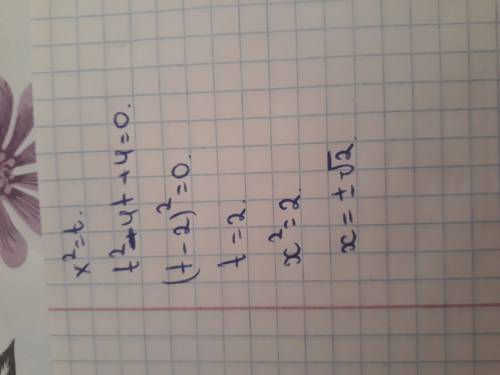 x²=t.
t²-4t+4=0.
(t-2)²=0.
t=2.
x²=2.
x=±√2.